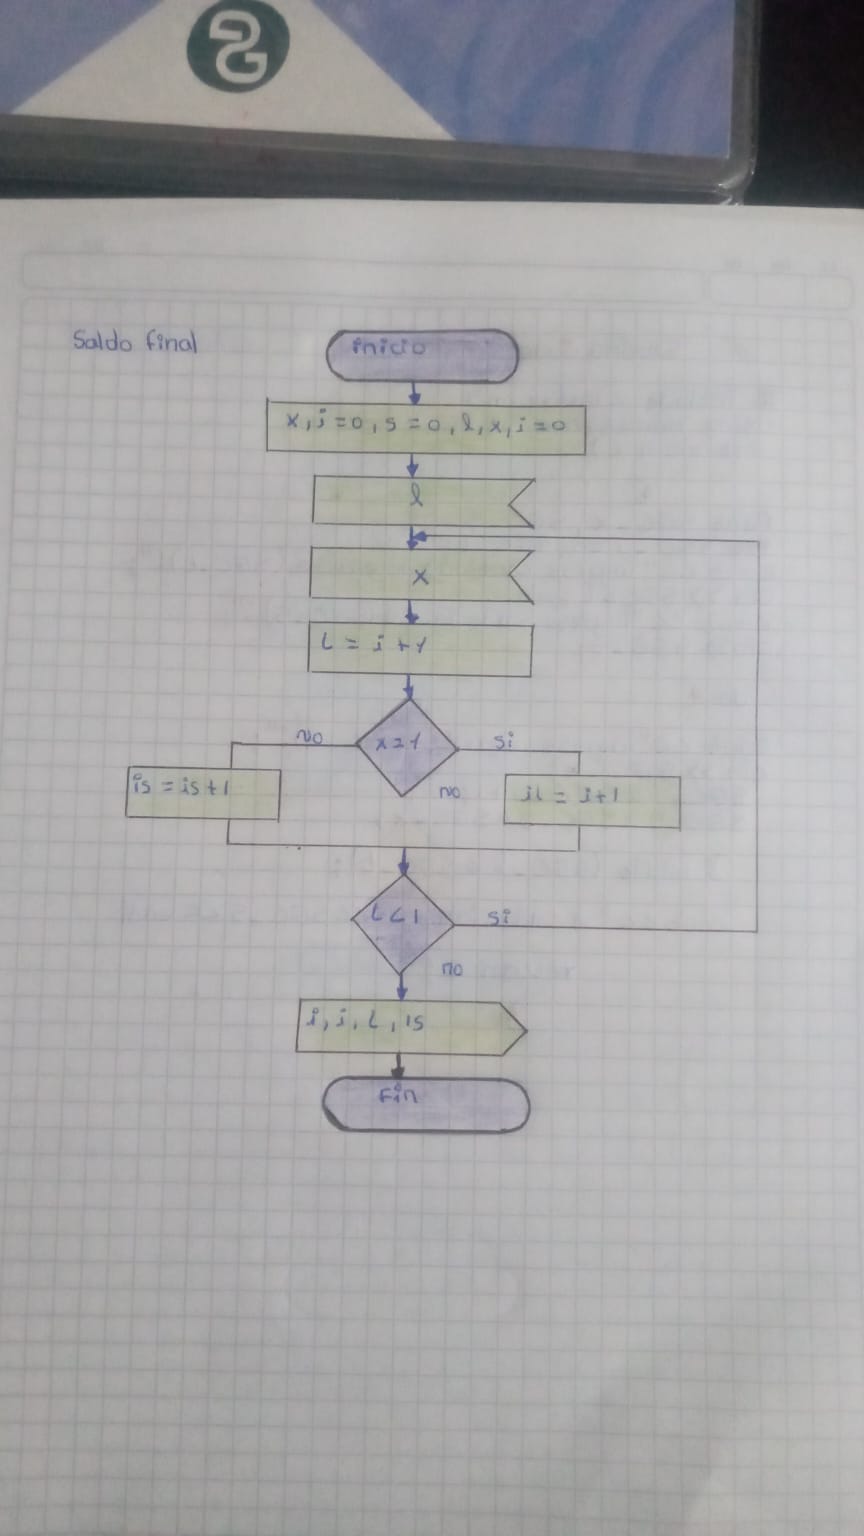 Saldo final
inicio
x, i = 0, s = 0, l, x, i = 0
l
x
L = i + 1
x = 1
No
si
is = is + 1
no
il = i + 1
L < 1
si
no
i, i, L, is
Fin